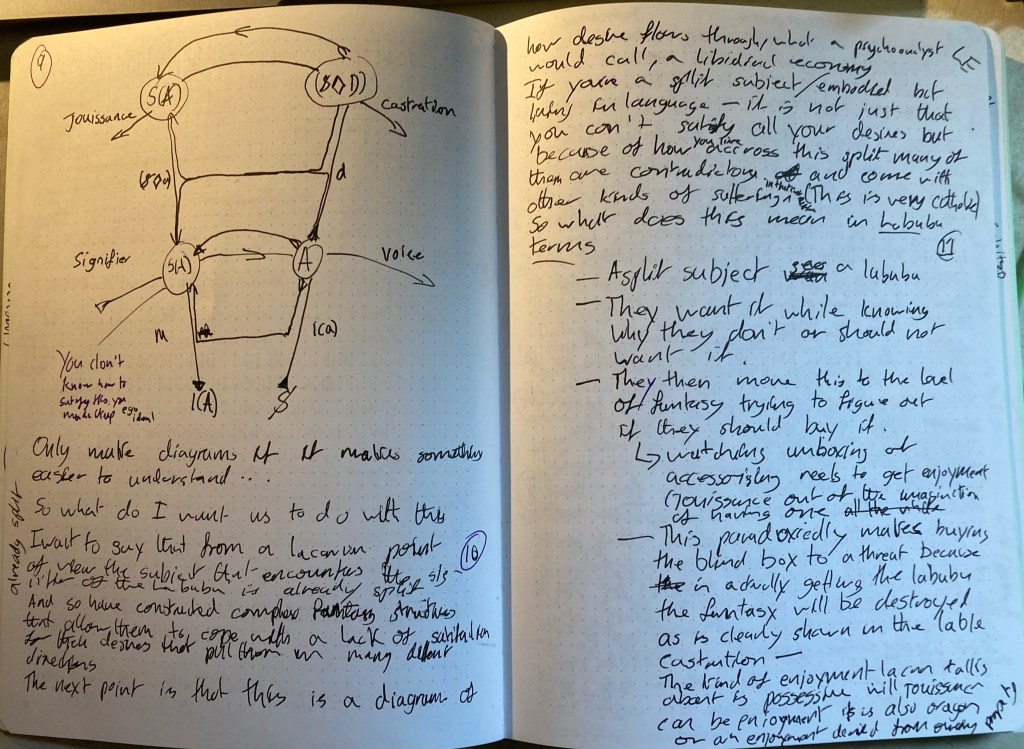 9
S(A)
($◊D)
Jouissance
Castration
($◊a)
d
Signifier
S(A)
A
Voice
m
i(a)
You don't
know how to
satisfy this, you
made up ego ideal
I(A)
$
Only make diagrams if it makes something
easier to understand ....
So what do I want us to do with this
I want to say that from a lacanian point
10
of view the subject that encounters the s/s
of the Labubu is already split
already split
And so have constructed complex fantasy structures
that allow them to cope with a lack of satisfaction
desires that pull them in many different
directions
The next point is that this is a diagram of
how desire flows through, what a psychoanalyst
LE
would call, a libidinal economy
If you're a split subject/embodied but
living in language – it is not just that
you can't satisfy all your desires but
because of how you are accross this split many of
them are contradictory and come with
other kinds of suffering (This is very catholic)
So what does this mean in Labubu
terms
11
– A split subject sees a labubu
– They want it while knowing
why they don't or should not
want it.
– They then move this to the level
of funtasy trying to figure out
if they should buy it.
↳ watching unboxing or
accessorising reels to get enjoyment
(jouissance out of the imagination
of having one all the while
– This paradoxiedly makes buying
the blind box to a threat because
the in actually getting the labubu
the funtasy will be destroyed
as is clearly shown in the lable
Castration –
The kind of enjoyment lacan talks
about is possessive will Jouissance
can be enjoyment it is also
or an enjoyment derived from owning property